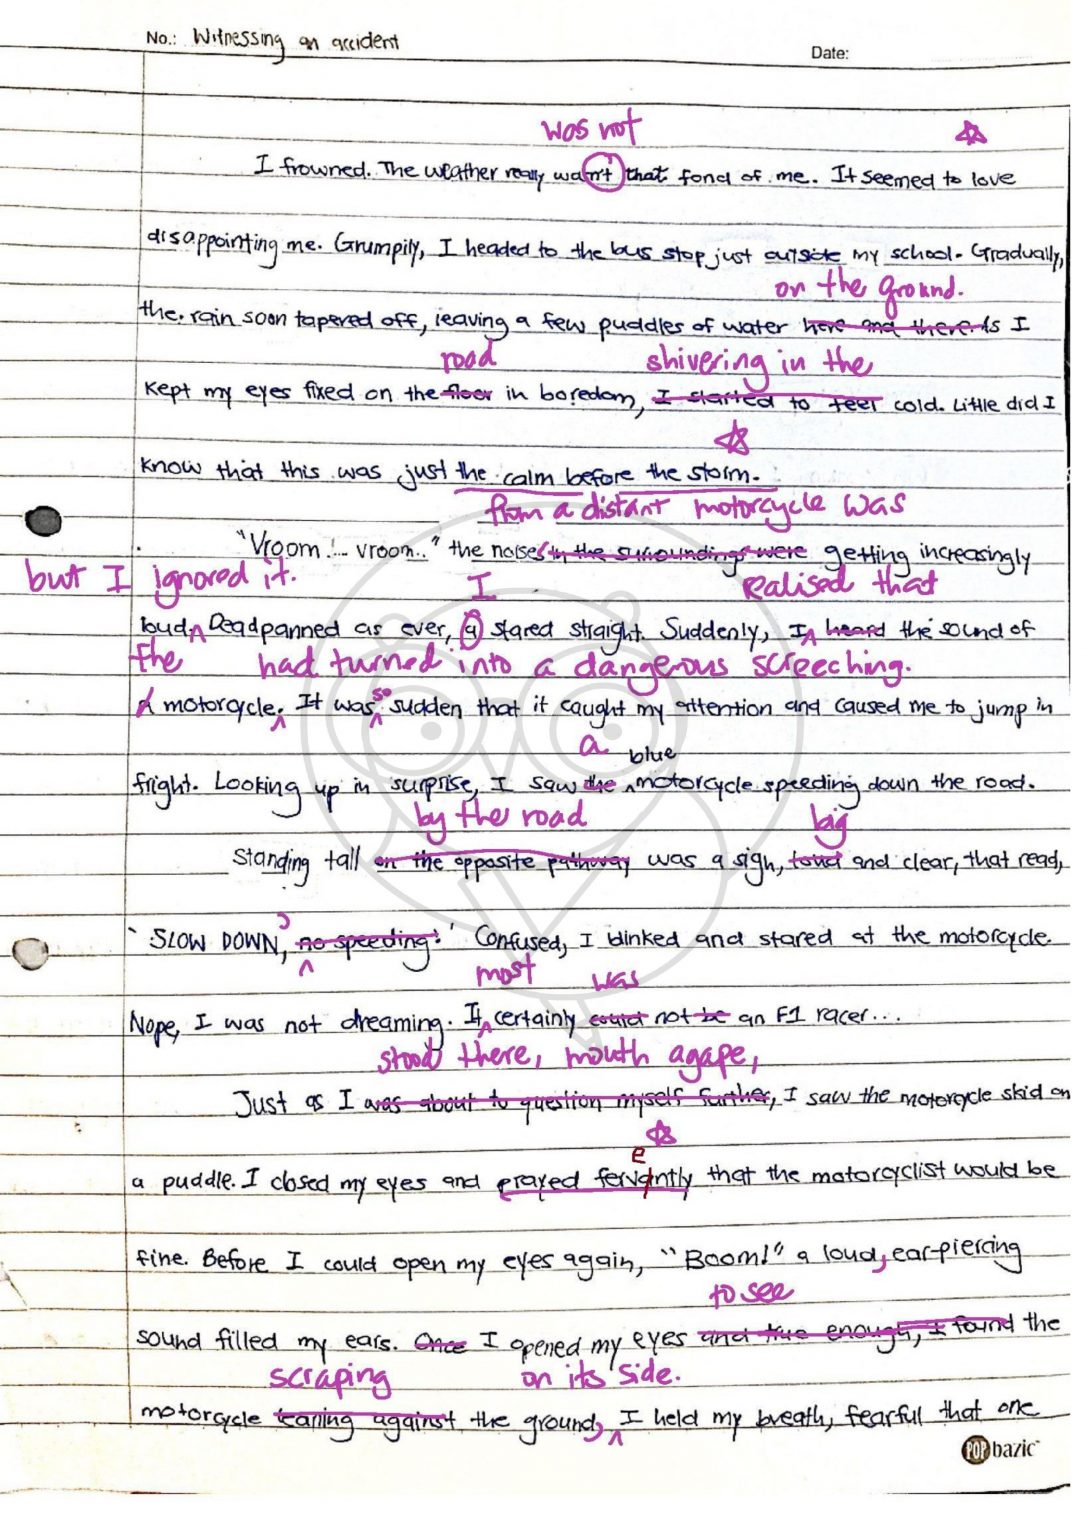 No.: Witnessing an accident
Date:
was not
I frowned. The weather really wasn't that fond of me. It seemed to love
disappointing me. Grumpily, I headed to the bus stop just outside my school. Gradually,
on the ground.
the rain soon tapered off, leaving a few puddles of water here and there. As I
road shivering in the
kept my eyes fixed on the floor in boredom, I started to feel cold. Little did I
know that this was just the calm before the storm.
from a distant motorcycle was
"Vroom... vroom.." the noises in the surroundings were getting increasingly
but I ignored it. I realised that
loud. Deadpanned as ever, a stared straight. Suddenly, I heard the sound of
the had turned into a dangerous screeching.
a motorcycle. It was so sudden that it caught my attention and caused me to jump in
a blue
fright. Looking up in surprise, I saw the motorcycle speeding down the road.
by the road big
Standing tall on the opposite pathway was a sign, loud and clear, that read,
'SLOW DOWN, no speeding!' Confused, I blinked and stared at the motorcycle.
most was
Nope, I was not dreaming. It certainly could not be an F1 racer...
stood there, mouth agape,
Just as I was about to question myself further, I saw the motorcycle skid on
e
a puddle. I closed my eyes and prayed fervantly that the motorcyclist would be
fine. Before I could open my eyes again, "Boom!" a loud, ear-piercing
to see
sound filled my ears. Once I opened my eyes and true enough, I found the
scraping on its side.
motorcycle against the ground, I held my breath, fearful that one
POP bazic